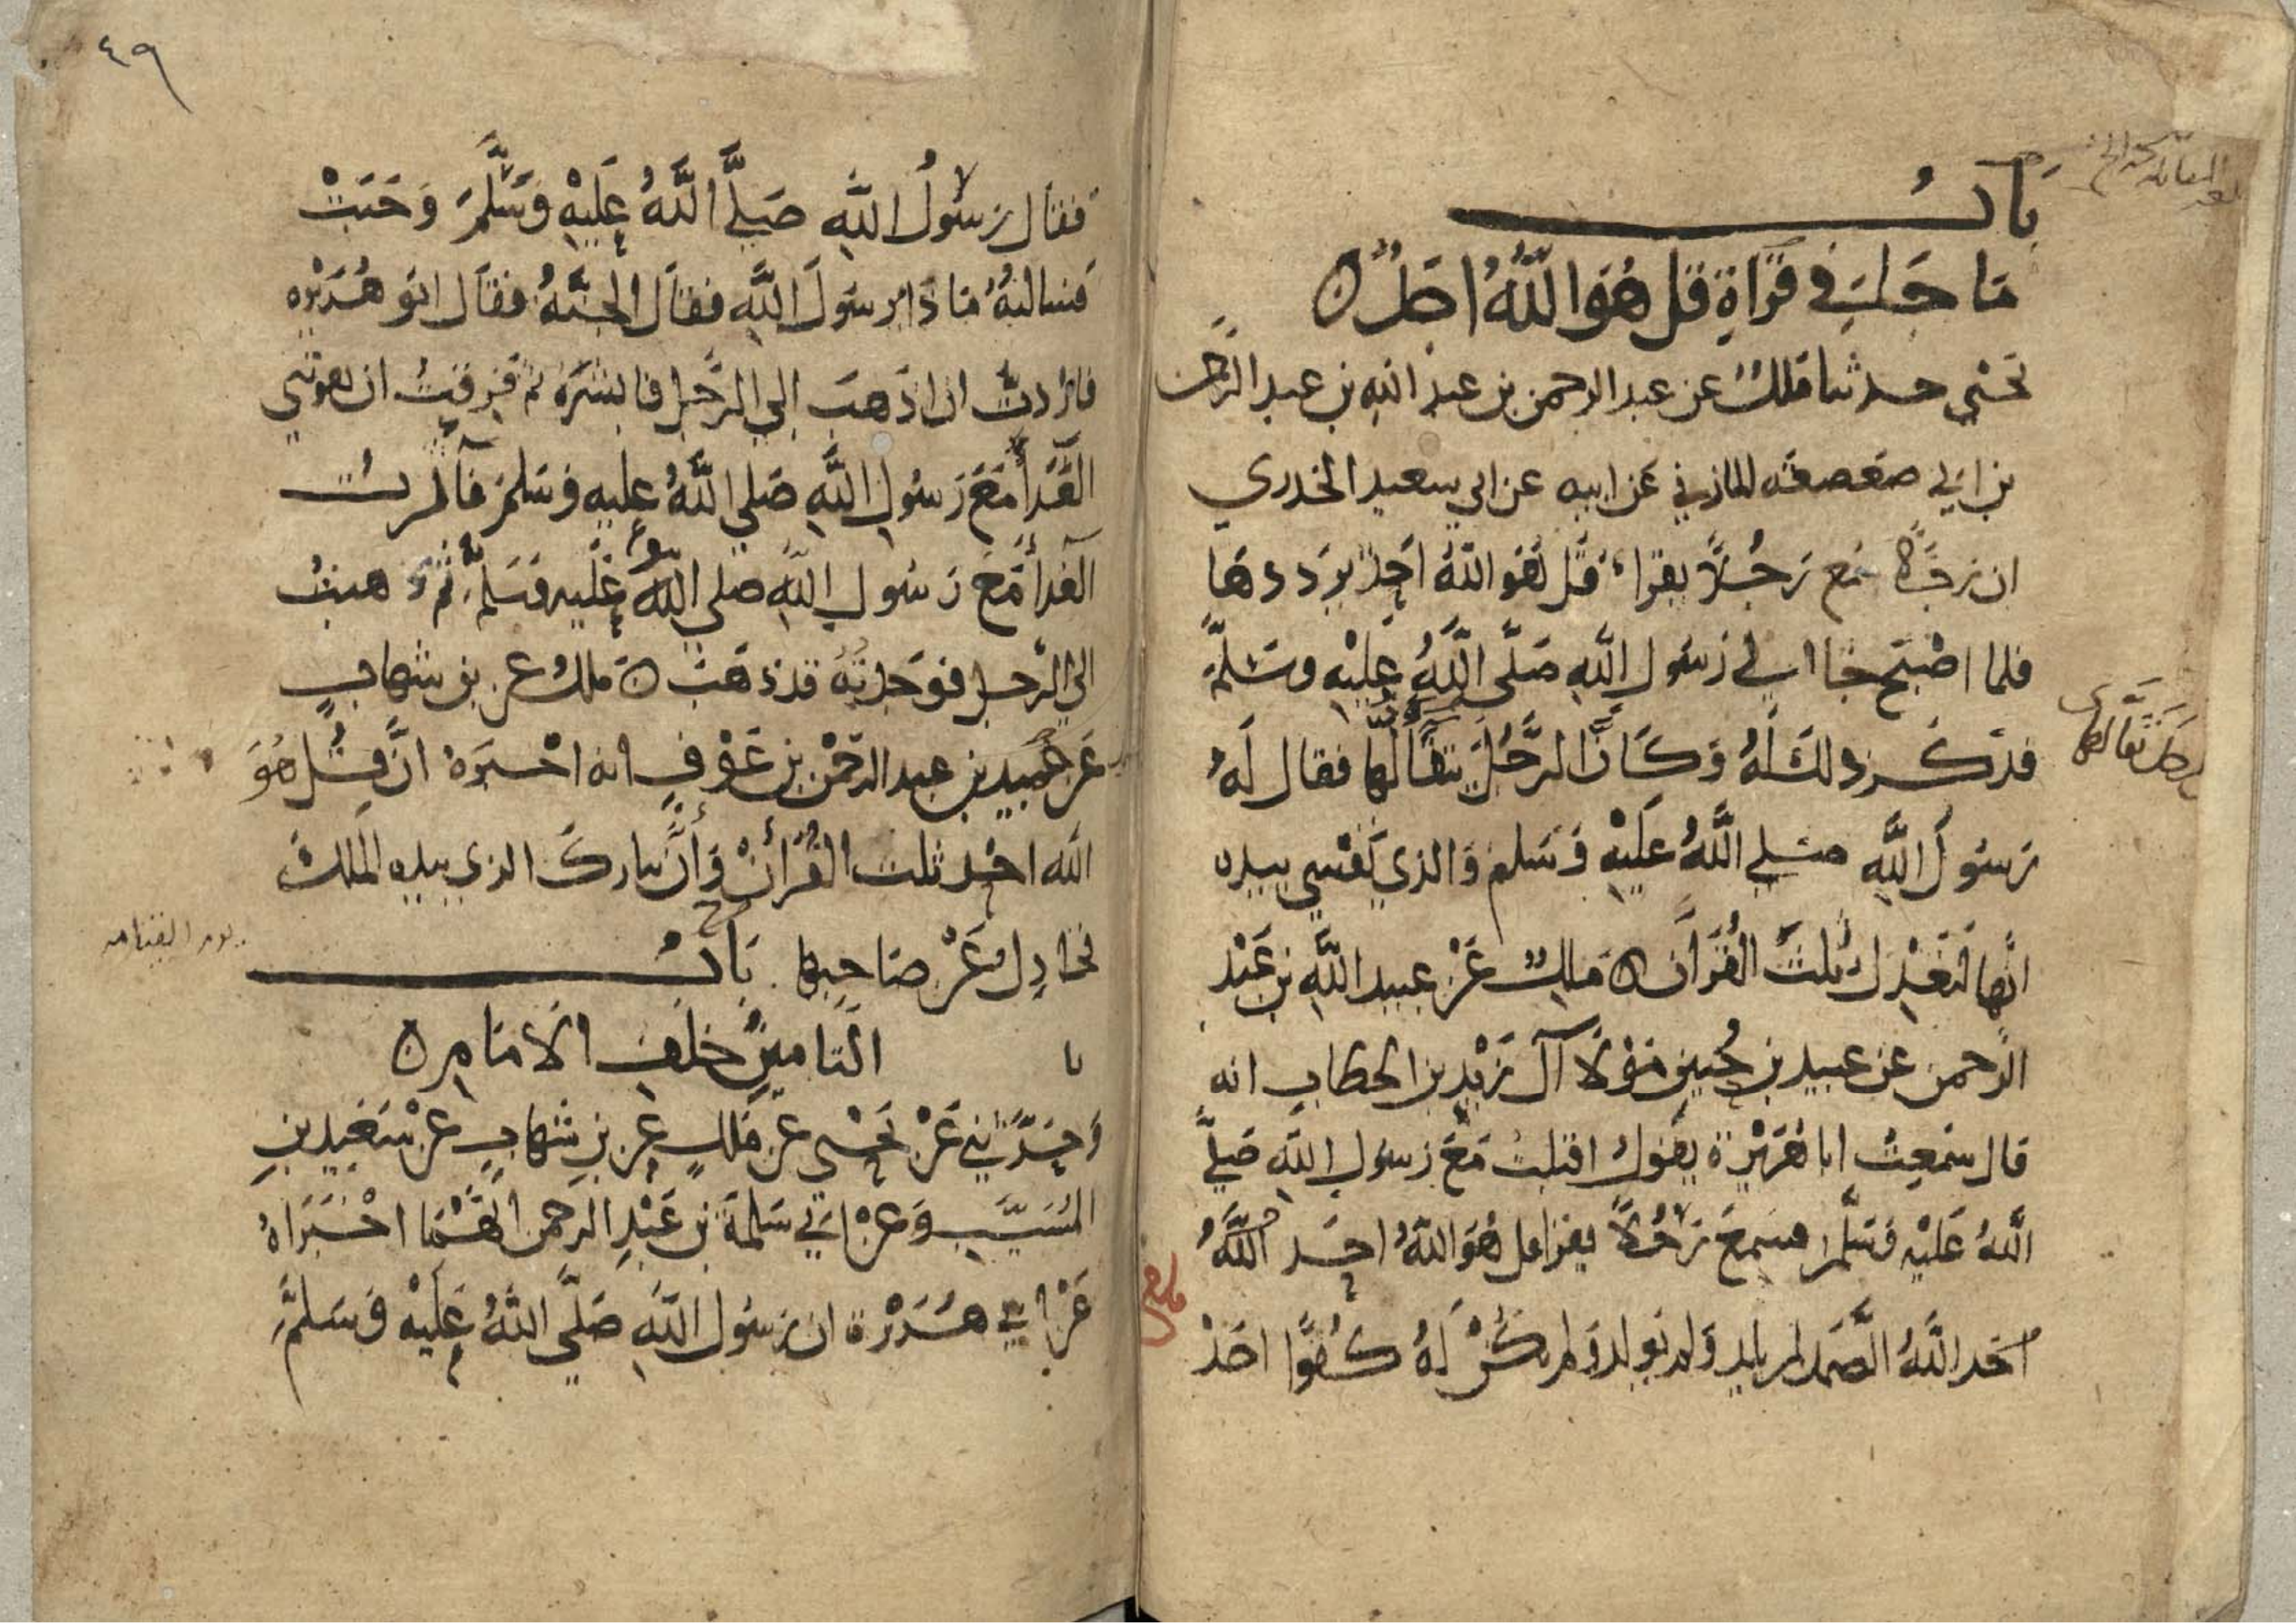 باب
ما جاء في قراة قل هو الله احد
يحيى حدثنا ملك عن عبد الرحمن بن عبد الله بن عبد الرحمن
بن ابي صعصعه المازني عن ابيه عن ابي سعيد الخدري
ان رجلا سمع رجلا يقراء قل هو الله احد يرددها
فلما اصبح جا الي رسول الله صلى الله عليه وسلم
فذكر ذلك له وكان الرجل يتقالها فقال له
رسول الله صلي الله عليه وسلم والذي نفسي بيده
انها لتعدل ثلث القران ملك عن عبيد الله بن عبد
الرحمن عن عبيد بن حنين مولا آل زيد بن الخطاب انه
قال سمعت ابا هريرة يقول اقبلت مع رسول الله صلى
الله عليه وسلم فسمع رجلا يقرا قل هو الله احد الله
احد الله الصمد لم يلد ولم يولد ولم يكن له كفوا احد
٤٩
فقال رسول الله صلى الله عليه وسلم وجبت
فسالته ماذا يرسول الله فقال الجنة فقال ابو هريره
فاردت ان اذهب الي الرجل فابشره ثم فرقت ان يفوتني
الغدا مع رسول الله صلي الله عليه وسلم فآثرت
الغدا مع رسول الله صلي الله عليه وسلم ثم ذهبت
الي الرجل فوجدته قد ذهب ملك عن بن شهاب
عن حميد بن عبد الرحمن بن عوف انه اخبره ان قل هو
الله احد ثلث القران وان تبارك الذي بيده الملك
تجادل عن صاحبها باب
يوم القيامه
التامين خلف الامام
وحدثني عن يحيى عن ملك عن بن شهاب عن سعيد بن
المسيب وعن ابي سلمة بن عبد الرحمن انهما اخبراه
عن ابي هريرة ان رسول الله صلى الله عليه وسلم